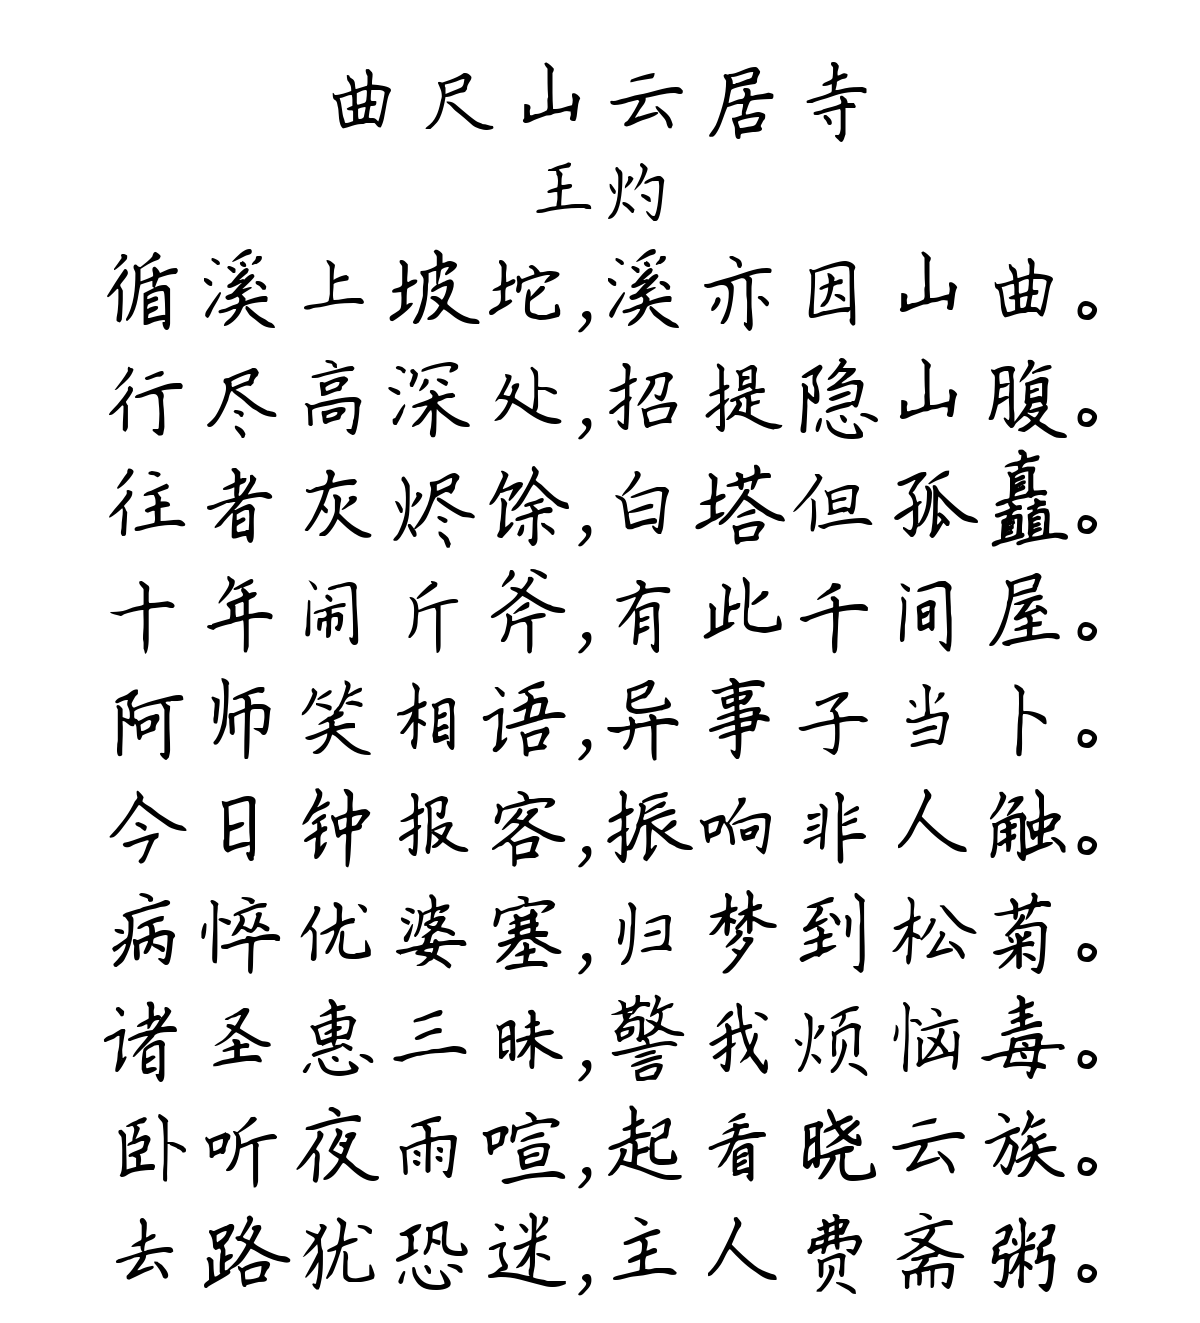 曲尺山云居寺
王灼
循溪上坡坨,溪亦因山曲。
行尽高深处,招提隐山腹。
往者灰烬馀,白塔但孤矗。
十年闹斤斧,有此千间屋。
阿师笑相语,异事子当卜。
今日钟报客,振响非人触。
病悴优婆塞,归梦到松菊。
诸圣惠三昧,警我烦恼毒。
卧听夜雨喧,起看晓云族。
去路犹恐迷,主人费斋粥。